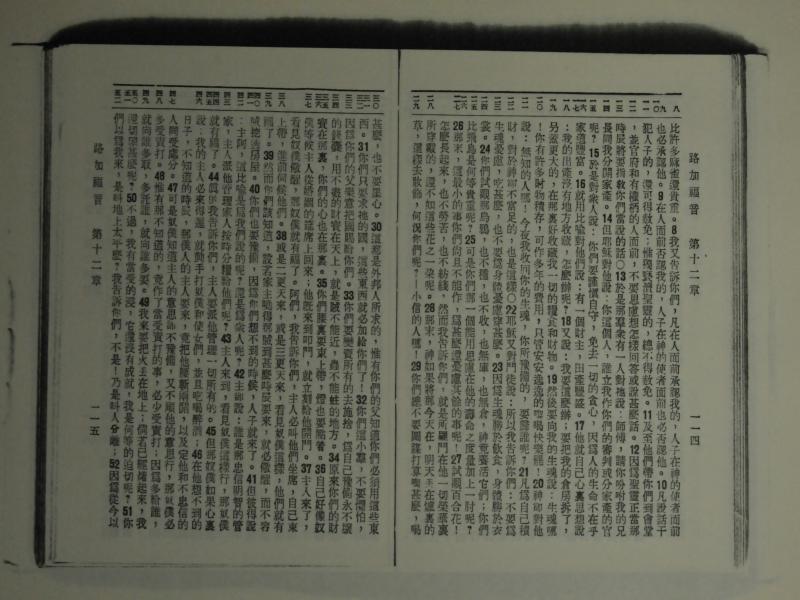 路加福音 第十二章 一一四
比許多麻雀還貴重。8我又告訴你們，凡在人面前承認我的，人子在神的使者面前
也必承認他。9在人面前否認我的，人子在神的使者面前也必否認他。10凡說話干
犯人子的，還可得赦免；惟獨褻瀆聖靈的，總不得赦免。11及至他們帶你們到會堂
並官府和有權柄的人面前，不要思慮想怎樣回答或說甚麼話。12因爲聖靈正當那
時辰將要指敎你們當說的話○13於是那羣衆有一人對他說：師傅，請你吩咐我的兄
長同我分開家產。14但耶穌對他說：你這個人，誰立我作你們的審判或分家產的官
呢？15於是對衆人說：你們要謹愼自守，免去一切的貪心，因爲人的生命不在乎
家道豐富。16就用比喻對他們說：有一個財主，田產豐盛。17他就自己心裏思想說
：我的出產沒有地方收藏，怎麼辦呢？18又說：我要這麼辦；要把我的倉房拆了，
另蓋更大的，在那裏好收藏我一切的糧食和財物。19然後要向我的生魂說：生魂哪
！你有許多財物積存，可作多年的費用，只管安安逸逸的喫喝快樂罷！20神卽對他
說：無知的人哪！今夜我收回你的生魂，你所豫備的，要歸誰呢？21凡爲自己積
財，對於神卽不富足的，也是這樣○22耶穌又對門徒說：所以我告訴你們：不要爲
生魂憂慮，吃甚麼，也不要爲身體憂慮穿甚麼。23因爲生魂勝於飲食，身體勝於衣
裳。24你們試觀看烏鴉，也不種，也不收，也無庫，也無倉，神竟養活它們；你們
比飛鳥是何等貴重呢？25可是你們那一個能用思慮在他的壽命之度量加上一肘呢？
26那末，這最小的事你們尙且不能作，爲甚麼還憂慮其餘的事呢？27試觀百合花！
怎麼長起來，也不勞苦，也不紡綫，然而我告訴你們，就是所羅門在他一切榮華裏
所穿戴的，還不如這些花之一朵呢。28那末，神如果將那今天在，明天丢在爐裏的
草，這樣去妝飾，何況你們呢？小信的人哪！29你們總不要圖謀打算喫甚麼，喝
路加福音 第十二章 一一五
甚麼，也不要罣心。30這都是外邦人所求的，惟有你們的父知道你們必須用這些東
西。31你們只要求祂的國，這些東西就必加給你們了！32你們這小羣，不要懼怕，
因爲你們的父樂意把國賜給你們。33你們要變賣所有的去施捨，爲自己豫備永不壞
的錢囊，用不盡的財寶在天上，就是賊不能近，蟲不能蛀的地方。34原來你們的財
寶在那裏，你們的心也在那裏。35你們腰裏要束上帶，燈也要點着。36自己好像奴
僕等候主人從婚姻的筵席上回來；他旣來到叩門，就立刻給他開門。37主人來了，
看見奴僕儆醒，那奴僕就有福了。阿們，我告訴你們，主人必叫他們坐席，自己束
上帶，進前伺候他們。38或是二更天來，或是三更天來，看見奴僕這樣，他們就有
福了。39然而你們該知道，設若家主曉得那賊到甚麼時辰要來，就必儆醒，而不容
賊挖透房屋。40你們也要豫備，因爲你們想不到的時候，人子就來了。41但彼得說
：主阿，這比喻是爲我們說的呢？還是爲衆人呢？42主卽說：誰是那忠信明智的管
家，主人派他管理家人按時分糧給他們呢？43主人來到，看見奴僕這樣行，那奴僕
就有福了。44眞的我告訴你們，主人要派他管理一切所有的。45但那奴僕如果心裏
說：我的主人必來得遲，就動手打奴僕和使女們，並且吃喝醉酒；46在他想不到的
日子，不知道的時辰，那僕人的主人要來，竟把他腰斬兩開，以及定他和不忠信的
人同受處分。47可是奴僕知道主人的意思卽不豫備，又不順他的意思行，那奴僕必
多受責打。48惟有那不知道的，竟作了當受責打的事，必少受責打；因爲多給誰，
就向誰多取，多託誰，就向誰多要。49我來要把火丢在地上；倘若已經燒起來，我
還切望甚麼呢？50不過，我有當受的浸，它還沒有成就，我是何等的迫切呢？51你
們以爲我來，是叫地上太平麼？我告訴你們，不，是！乃是叫人分離；52因爲從今以